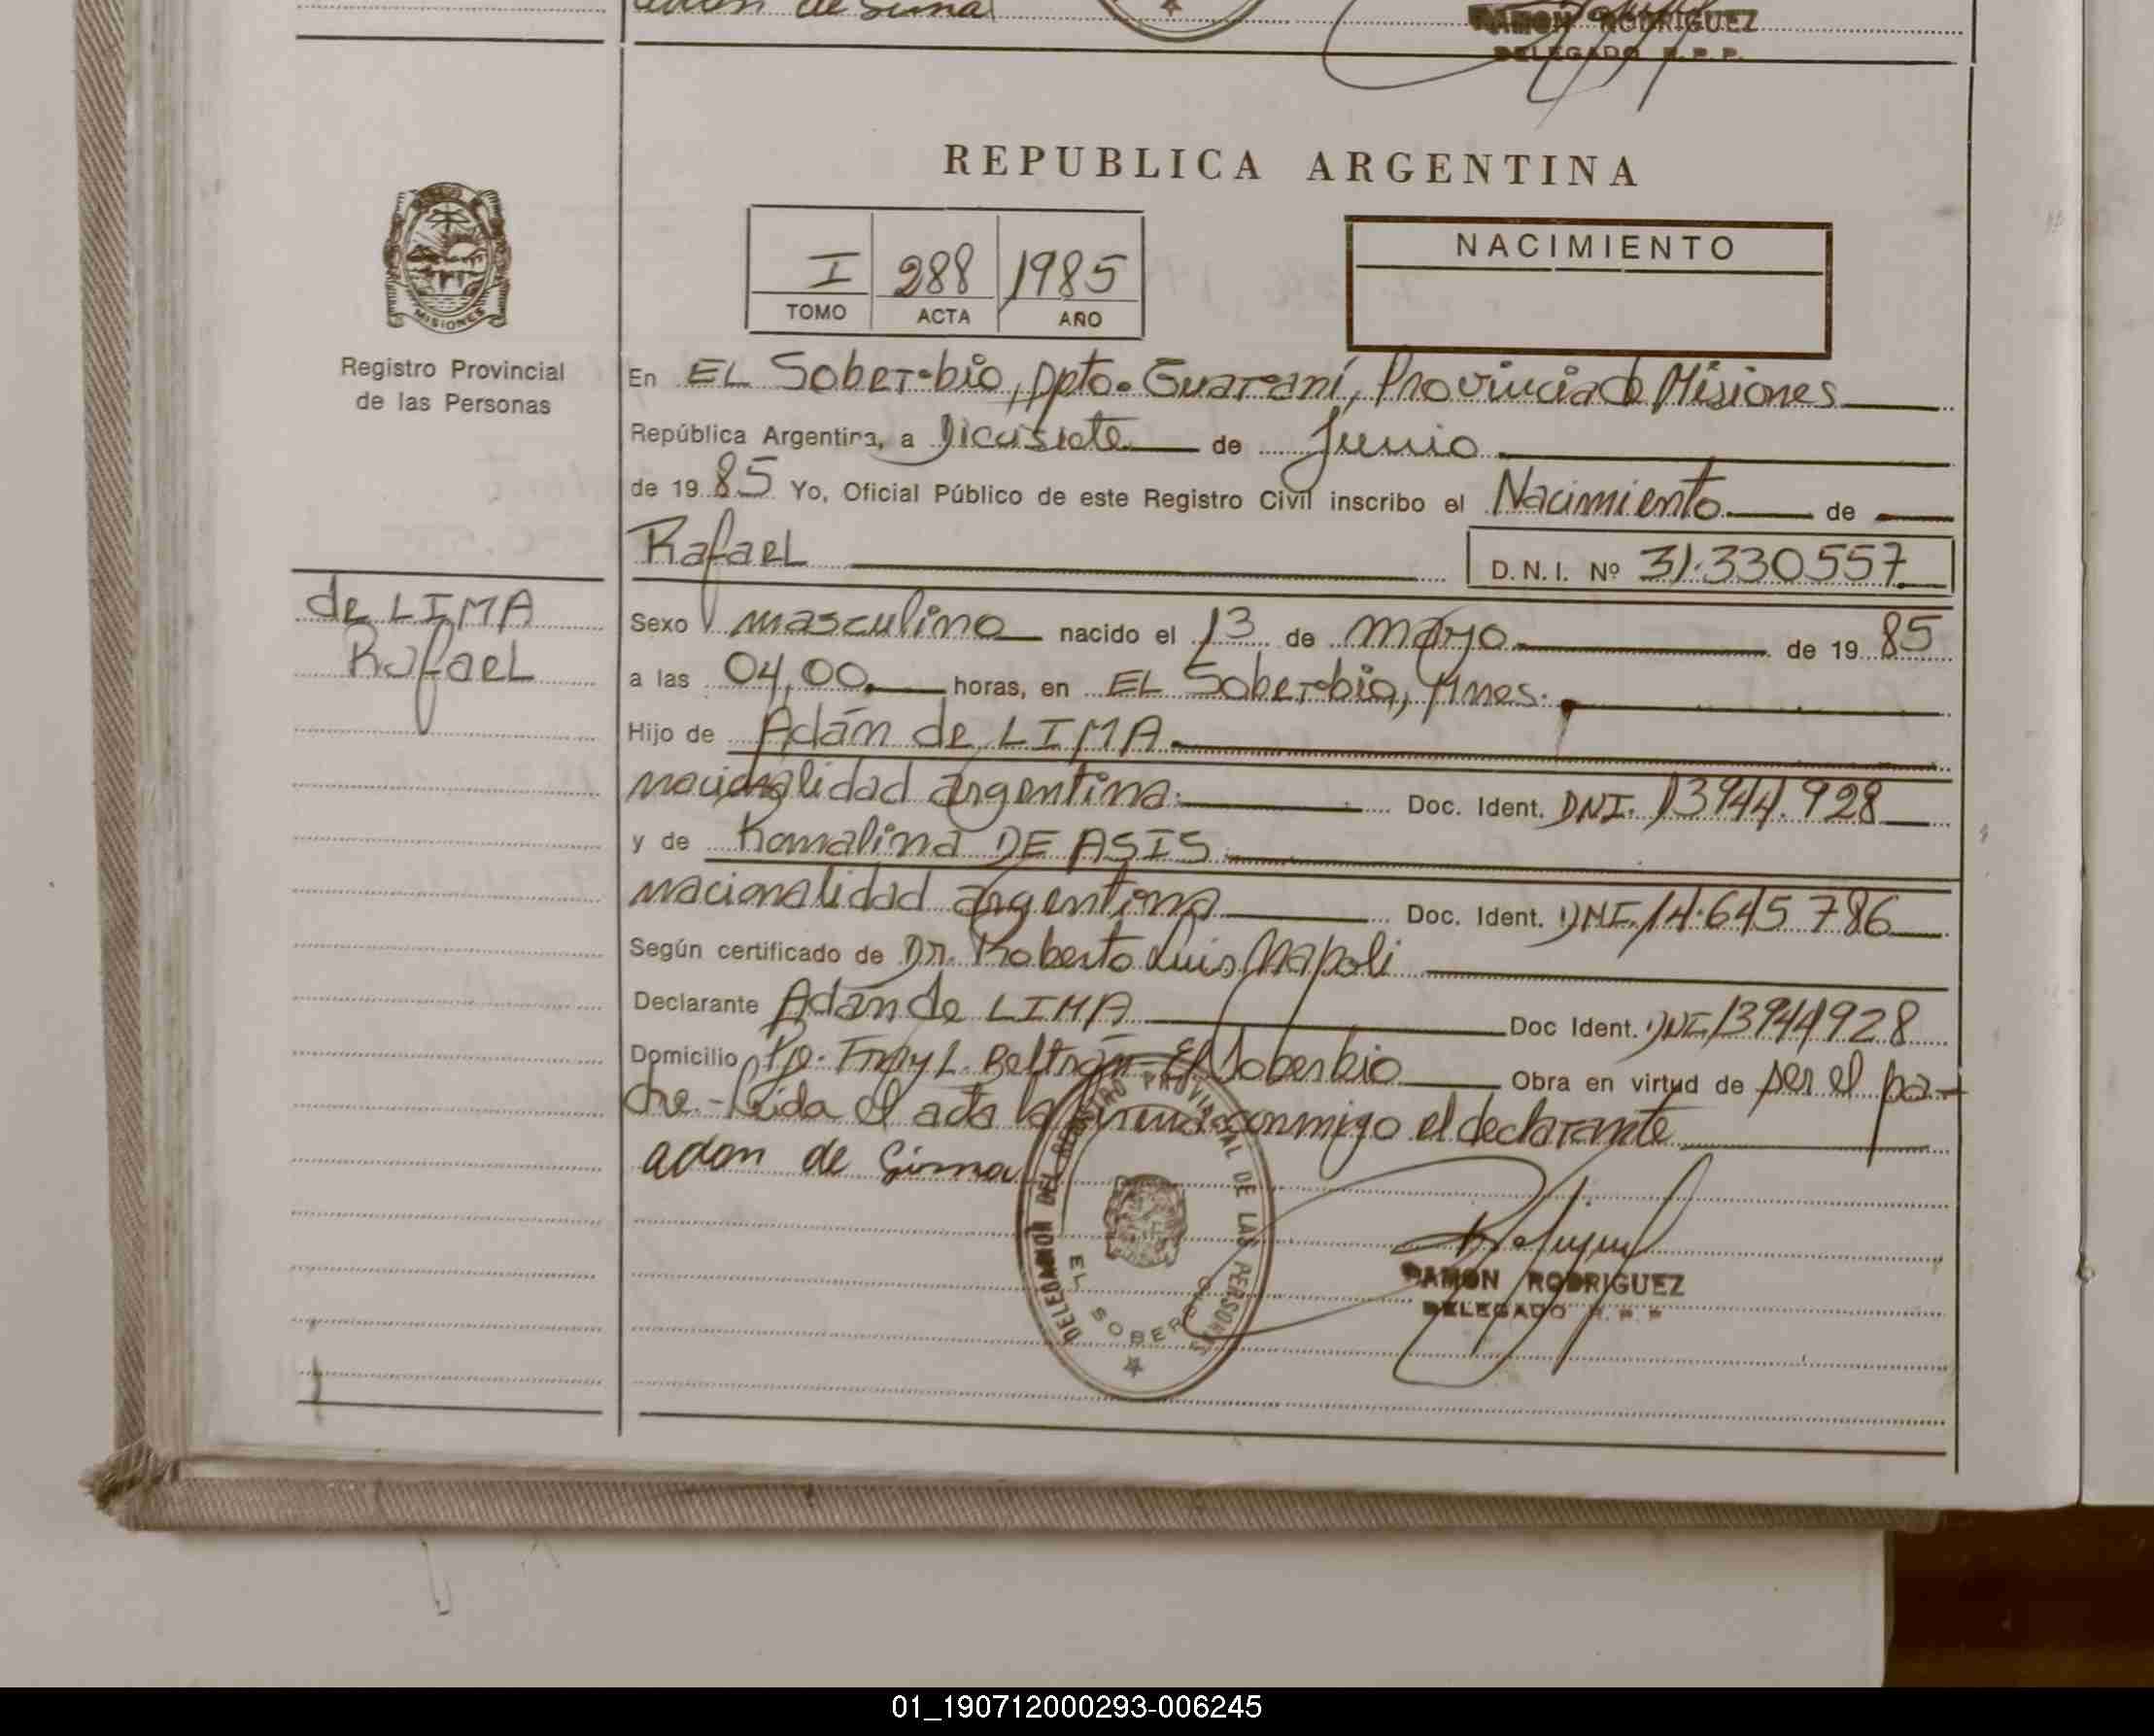 adon de Sima
RAMON RODRIGUEZ
DELEGADO R.P.P.
REPUBLICA ARGENTINA
I 288 1985
TOMO ACTA AÑO
NACIMIENTO
MISIONES
Registro Provincial
de las Personas
En EL Soberbio, Dpto. Guaraní, Provincia de Misiones
República Argentina, a Diecisiete de Junio
de 1985 Yo, Oficial Público de este Registro Civil inscribo el Nacimiento de
Rafael D.N.I. Nº 31.330557
de LIMA
Rafael
Sexo masculino nacido el 13 de mayo de 1985
a las 04,00 horas, en EL Soberbio, Mnes.
Hijo de Adán de LIMA
nacionalidad argentina. Doc. Ident. DNI. 13944.928
y de Romalina DE ASIS
nacionalidad argentina Doc. Ident. DNI. 14.645.786
Según certificado de Dr. Roberto Luis Napoli
Declarante Adán de LIMA Doc Ident. DNI 13944928
Domicilio Pje. Fray L. Beltrán - El Soberbio Obra en virtud de ser el pa-
dre.- Leida el acta la firma conmigo el declarante
adon de Sima
DELEGACION DEL REGISTRO PROVINCIAL DE LAS PERSONAS
EL SOBERBIO
RAMON RODRIGUEZ
DELEGADO R.P.P.
01_190712000293-006245